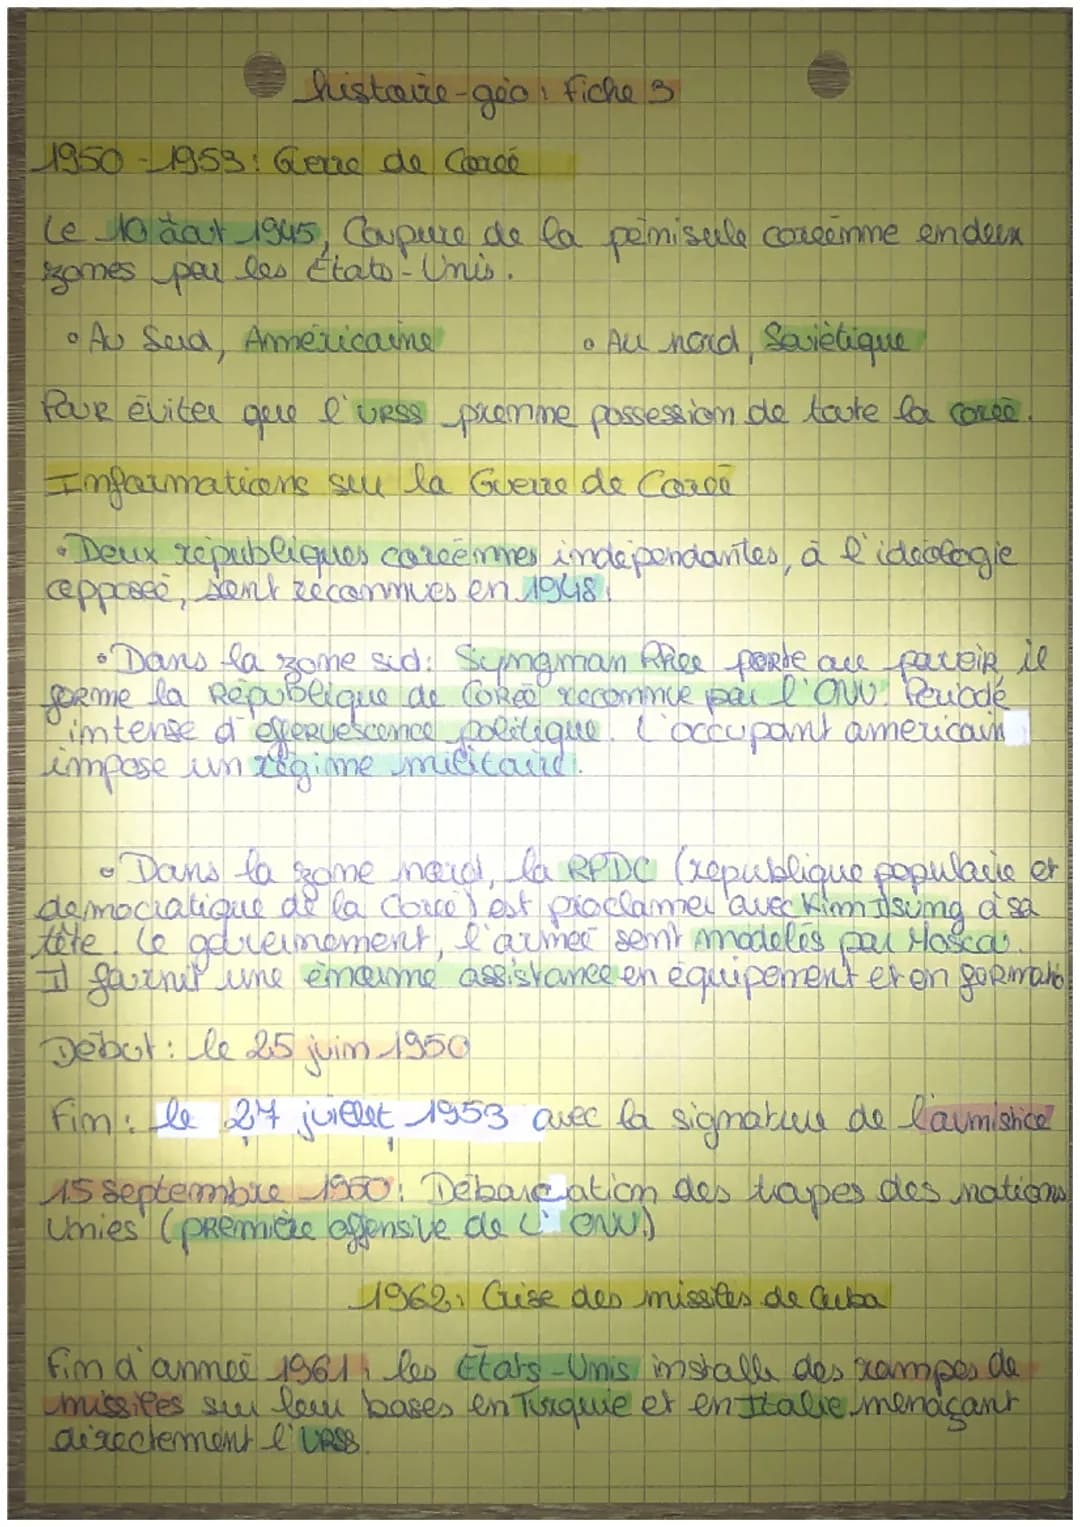 histoire-géo : fiche 3
1950-1953 : Gerre de Coreé
Le 10 août 1945, Coupure de la péninsule coréenne en deux
zones par les États-Unis.
• Au Sud, Américaine • Au nord, Soviétique
Pour éviter que l'URSS prenne possession de toute la coreé.
Informations sur la Guerre de Coreé
• Deux républiques coréennes indépendantes, à l'idéologie
opposeé, sont reconnues en 1948.
• Dans la zone sud : Syngman Rhee porte au pouvoir il
forme la République de Coreé reconnue par l'ONU. Période
intense d'effervescence politique. L'occupant americain
impose un régime militaire.
• Dans la zone nord, la RPDC (republique populaire et
democratique de la Coreé) est proclamer avec Kim Il sung à sa
tête. Le gouvernement, l'armeé sont modelés par Moscou.
Il fournit une énorme assistance en équipement et en formatio
Début : le 25 juin 1950
Fin : le 27 juillet 1953 avec la signature de l'armistice
15 septembre 1950 : Débarcation des troupes des nations
Unies (première offensive de L'ONU)
1962 : Crise des missiles de Cuba
Fin d'anneé 1961 : les États-Unis installe des rampes de
missiles sur leur bases en Turquie et en Italie menaçant
directement l'URSS.